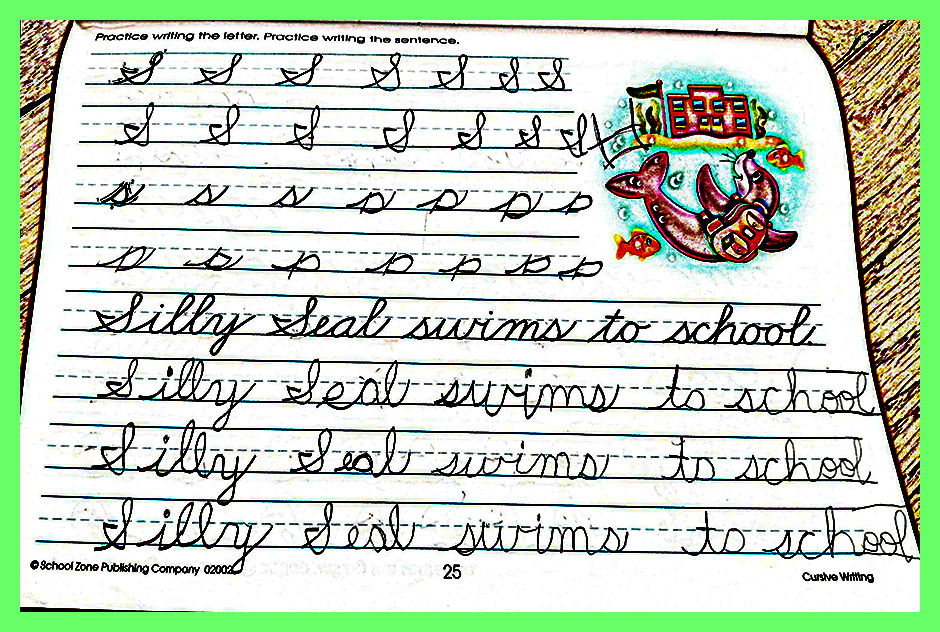 Practice writing the letter. Practice writing the sentence.
S S S S S S S
S S S S S S S
s s s s s s s
s s s s s s s
Silly Seal swims to school.
Silly Seal swims to school
Silly Seal swims to school
Silly Seal swims to school
© School Zone Publishing Company 02002
25
Cursive Writing